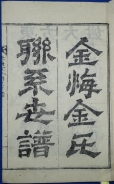 金海金氏
聯系世譜